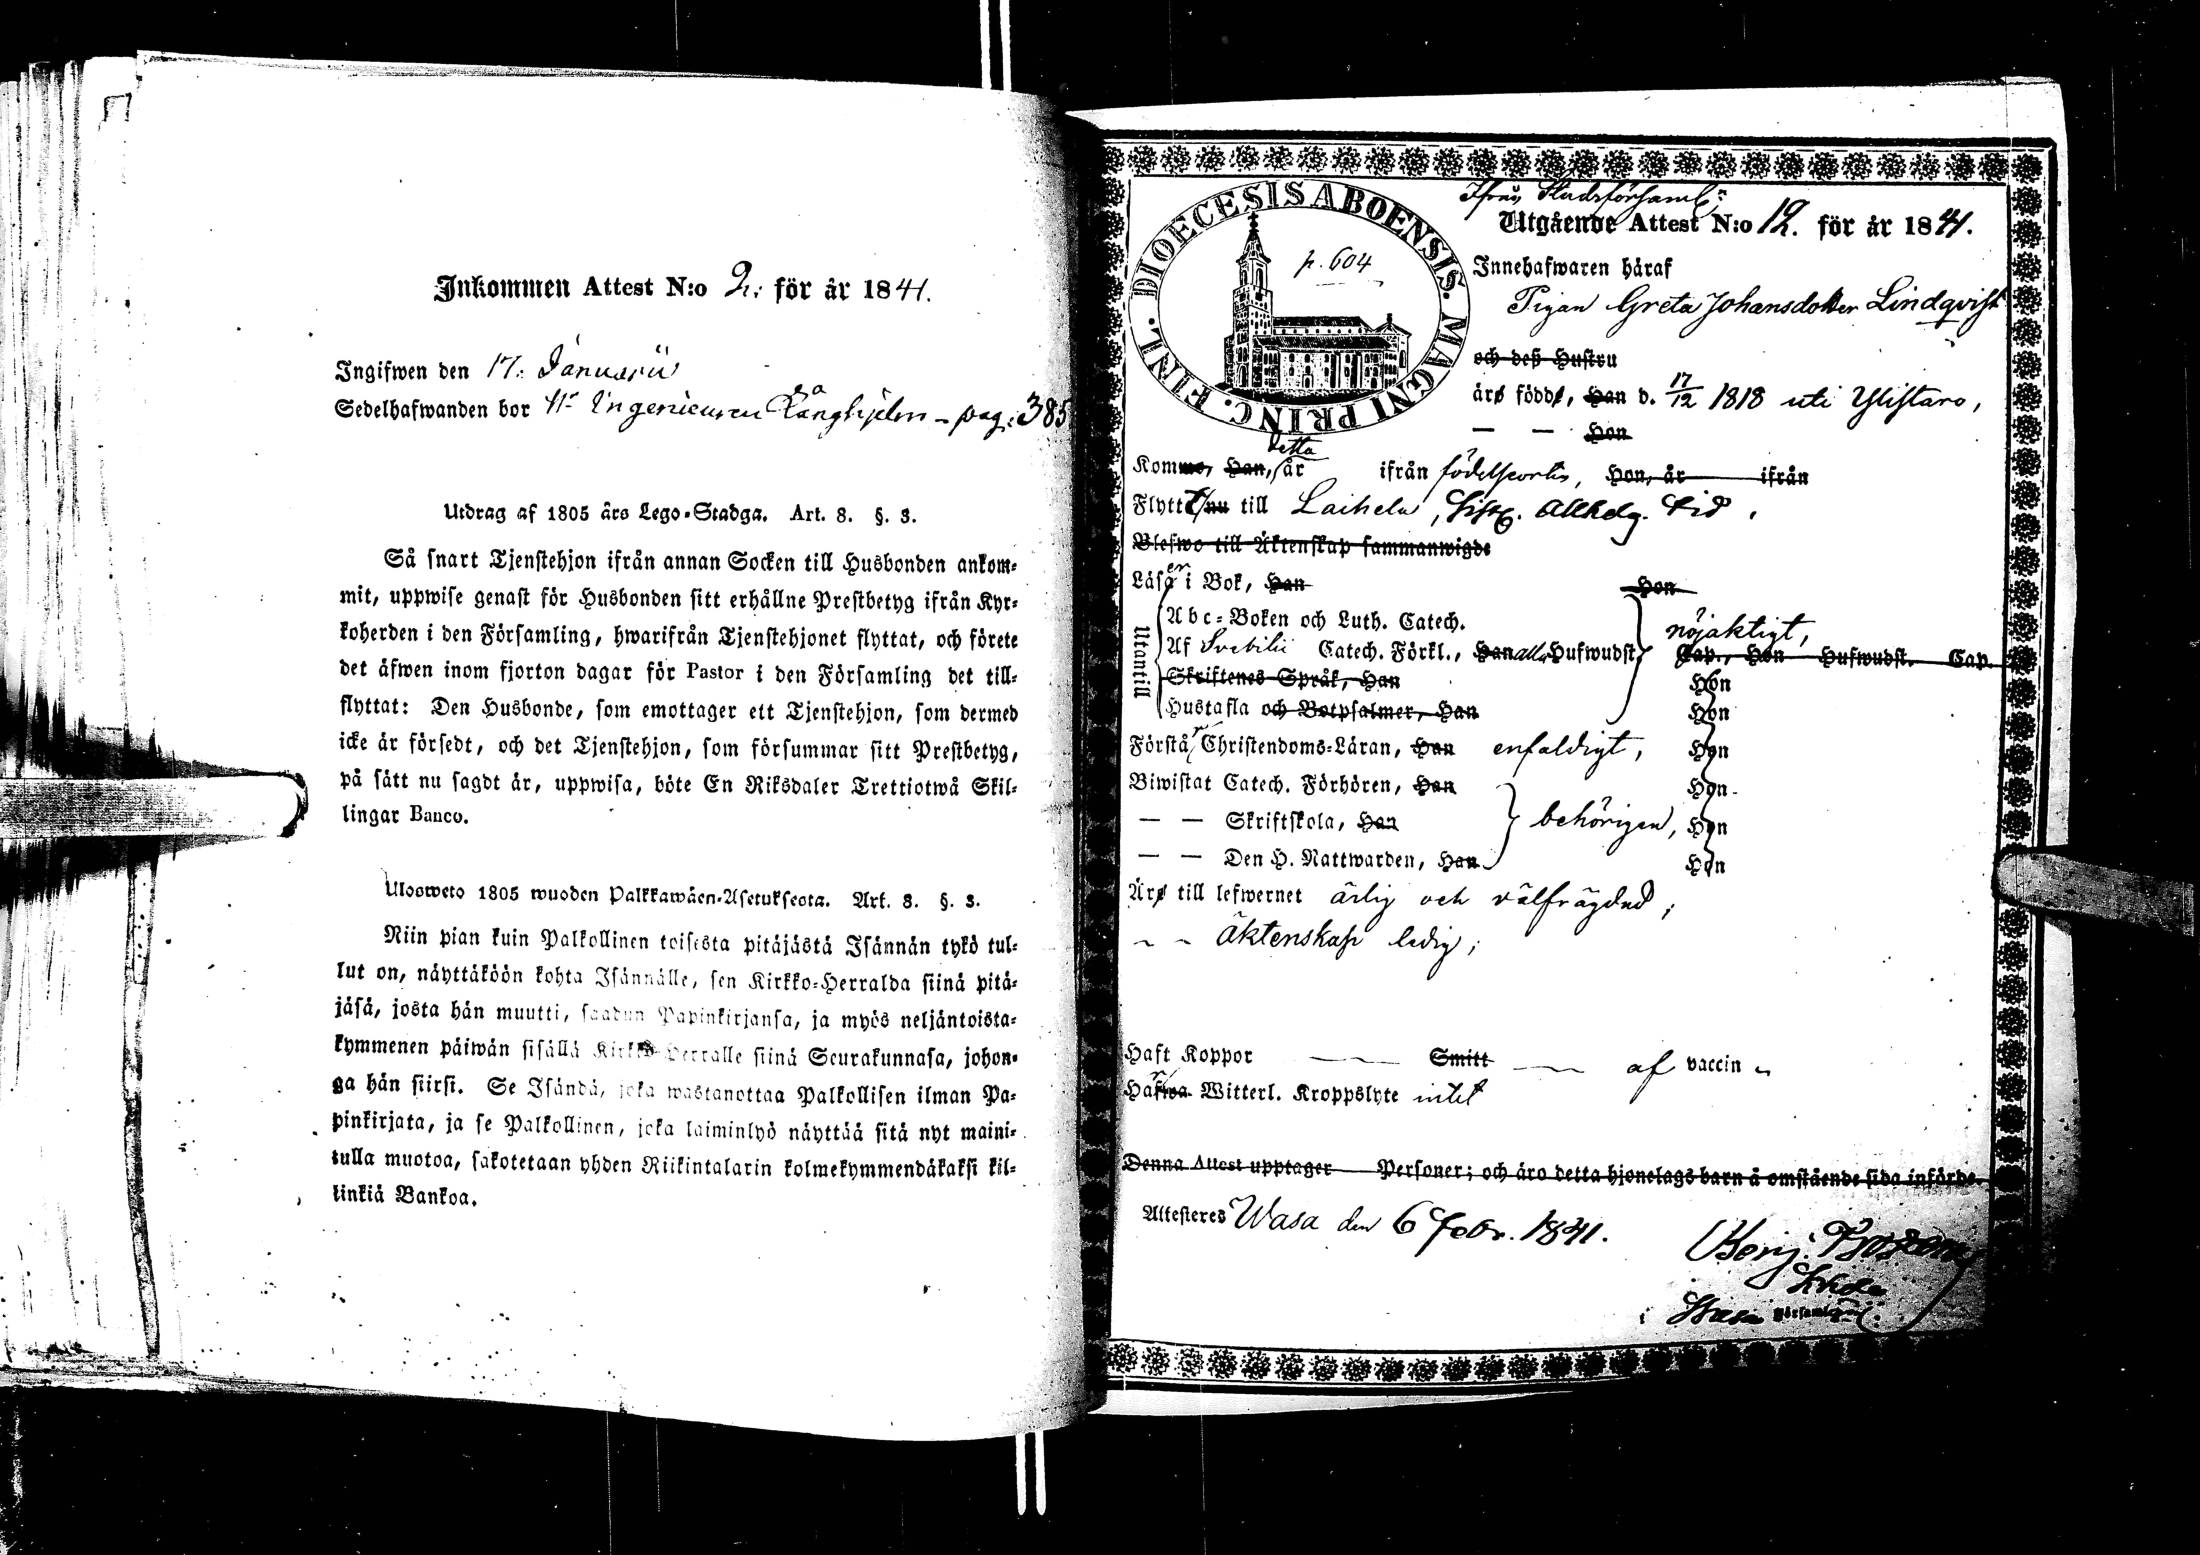 Inkommen Attest N:o 2. för år 1841.
Ingifwen den 17. Januarii
Sedelhafwanden bor Hr Ingenieuren Långhjelm - pag: 385
Utdrag af 1805 års Lego-Stadga. Art. 8. §. 3.
Så snart Tjenstehjon ifrån annan Socken till Husbonden ankom-
mit, uppwise genast för Husbonden sitt erhållne Prestbetyg ifrån Kyr-
koherden i den Församling, hwarifrån Tjenstehjonet flyttat, och förete
det äfwen inom fjorton dagar för Pastor i den Församling det till-
flyttat: Den Husbonde, som emottager ett Tjenstehjon, som dermed
icke är försedt, och det Tjenstehjon, som försummar sitt Prestbetyg,
på sätt nu sagdt är, uppwisa, böte En Riksdaler Trettiotwå Skil-
lingar Banco.
Ulosweto 1805 wuoden Palkkawäen-Asetuksesta. Art. 8. §. 3.
Niin pian kuin Palkollinen toisesta pitäjästä Isännän tykö tul-
lut on, näyttäköön kohta Isännälle, sen Kirkko-Herralda siinä pitä-
jäsä, josta hän muutti, saadun Papinkirjansa, ja myös neljäntoista-
kymmenen päiwän sisällä Kirkko-Herralle siinä Seurakunnasa, johon-
ga hän siirsi. Se Isändä, joka wastanottaa Palkollisen ilman Pa-
pinkirjata, ja se Palkollinen, joka laiminlyö näyttää sitä nyt maini-
tulla muotoa, sakotetaan yhden Riikintalarin kolmekymmendäkaksi kil-
linkiä Bankoa.
DIOECESIS ABOENSIS. MAGNI PRINC. FINL.
p. 604
Ifrån Stadsförsaml:n
Utgående Attest N:o 12. för år 1841.
Innehafwaren häraf
Pigan Greta Johansdotter Lindqvist
och deß Hustru
äro född, Han d. 17/12 1818 uti Ylistaro,
— — Hon
Komme, Han, detta år ifrån födelseorten, Hon, år ifrån
Flytt nu till Laihela, sist. Allhelg. tid.
Blefwo till Äktenskap sammanwigde
Läser i Bok, Han Hon
Utantill
Abc-Boken och Luth. Catech.
Af Svebilii Catech. Förkl., Han alla Hufwudst. nöjaktigt, Cap., Hon Hufwudst. Cap.
Skriftenes Språk, Han Hon
Hustafla och Botpsalmer, Han Hon
Förstår Christendoms-Läran, Han enfaldigt, Hon
Biwistat Catech. Förhören, Han Hon
— — Skriftskola, Han behörigen, Hon
— — Den H. Nattwarden, Han Hon
Äro till lefwernet ärlig och välfrägdad;
- - Äktenskap ledig;
Haft Koppor — Smitt — af vaccin
Har Witterl. Kroppslyte intet
Denna Attest upptager Personer; och äro detta hjonelags barn å omstående sida införde.
Attesteres Wasa den 6 Febr. 1841.
Benj.
i Wasa Församl.